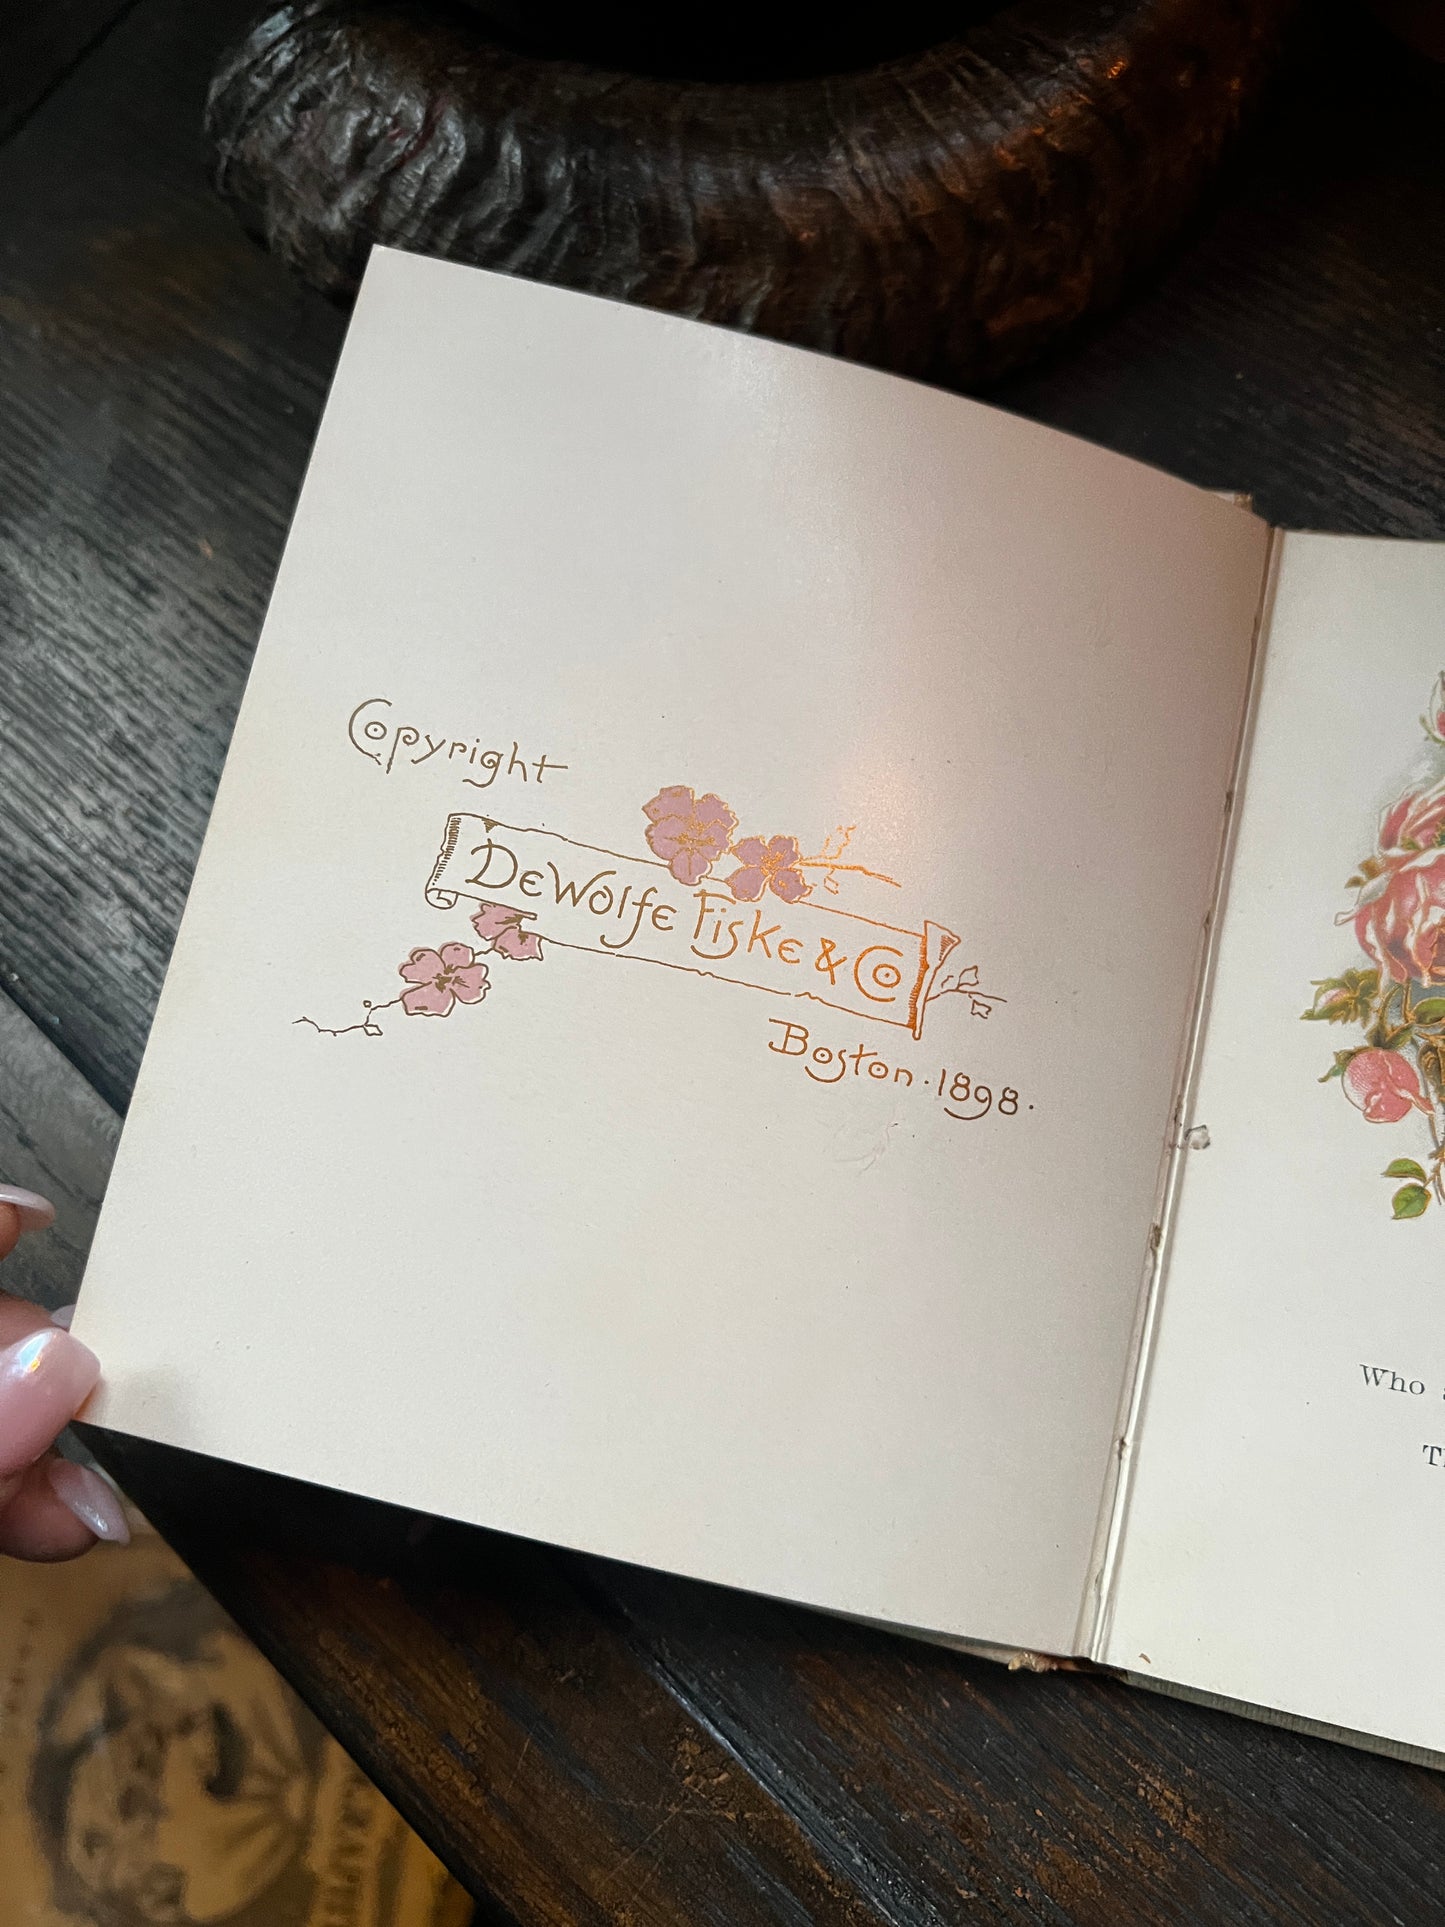 Copyright
DeWolfe Fiske & Co
Boston · 1898 ·
Who